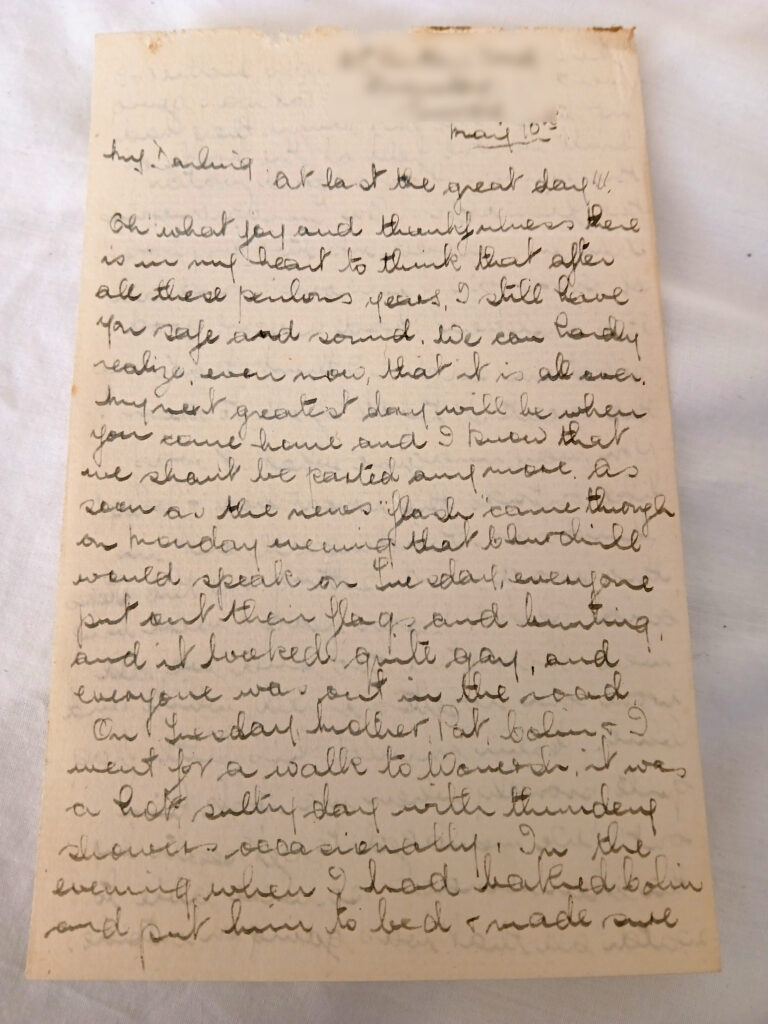 May 10th
My Darling
at last the great day!!!
Oh what joy and thankfulness there
is in my heart to think that after
all these perilous years, I still have
you safe and sound. We can hardly
realize, even now, that it is all over.
My next greatest day will be when
you come home and I know that
we shant be parted any more. As
soon as the news "flash" came through
on Monday evening that Churchill
would speak on Tuesday, everyone
put out their flags and bunting,
and it looked quite gay, and
everyone was out in the road.
On Tuesday, Mother, Pat, Colin & I
went for a walk to Wonersh, it was
a hot, sultry day with thundery
showers occasionally. In the
evening when I had bathed Colin
and put him to bed & made sure